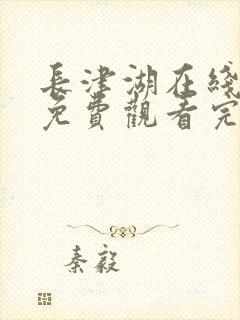 長津湖在綫
免費觀看完
秦毅